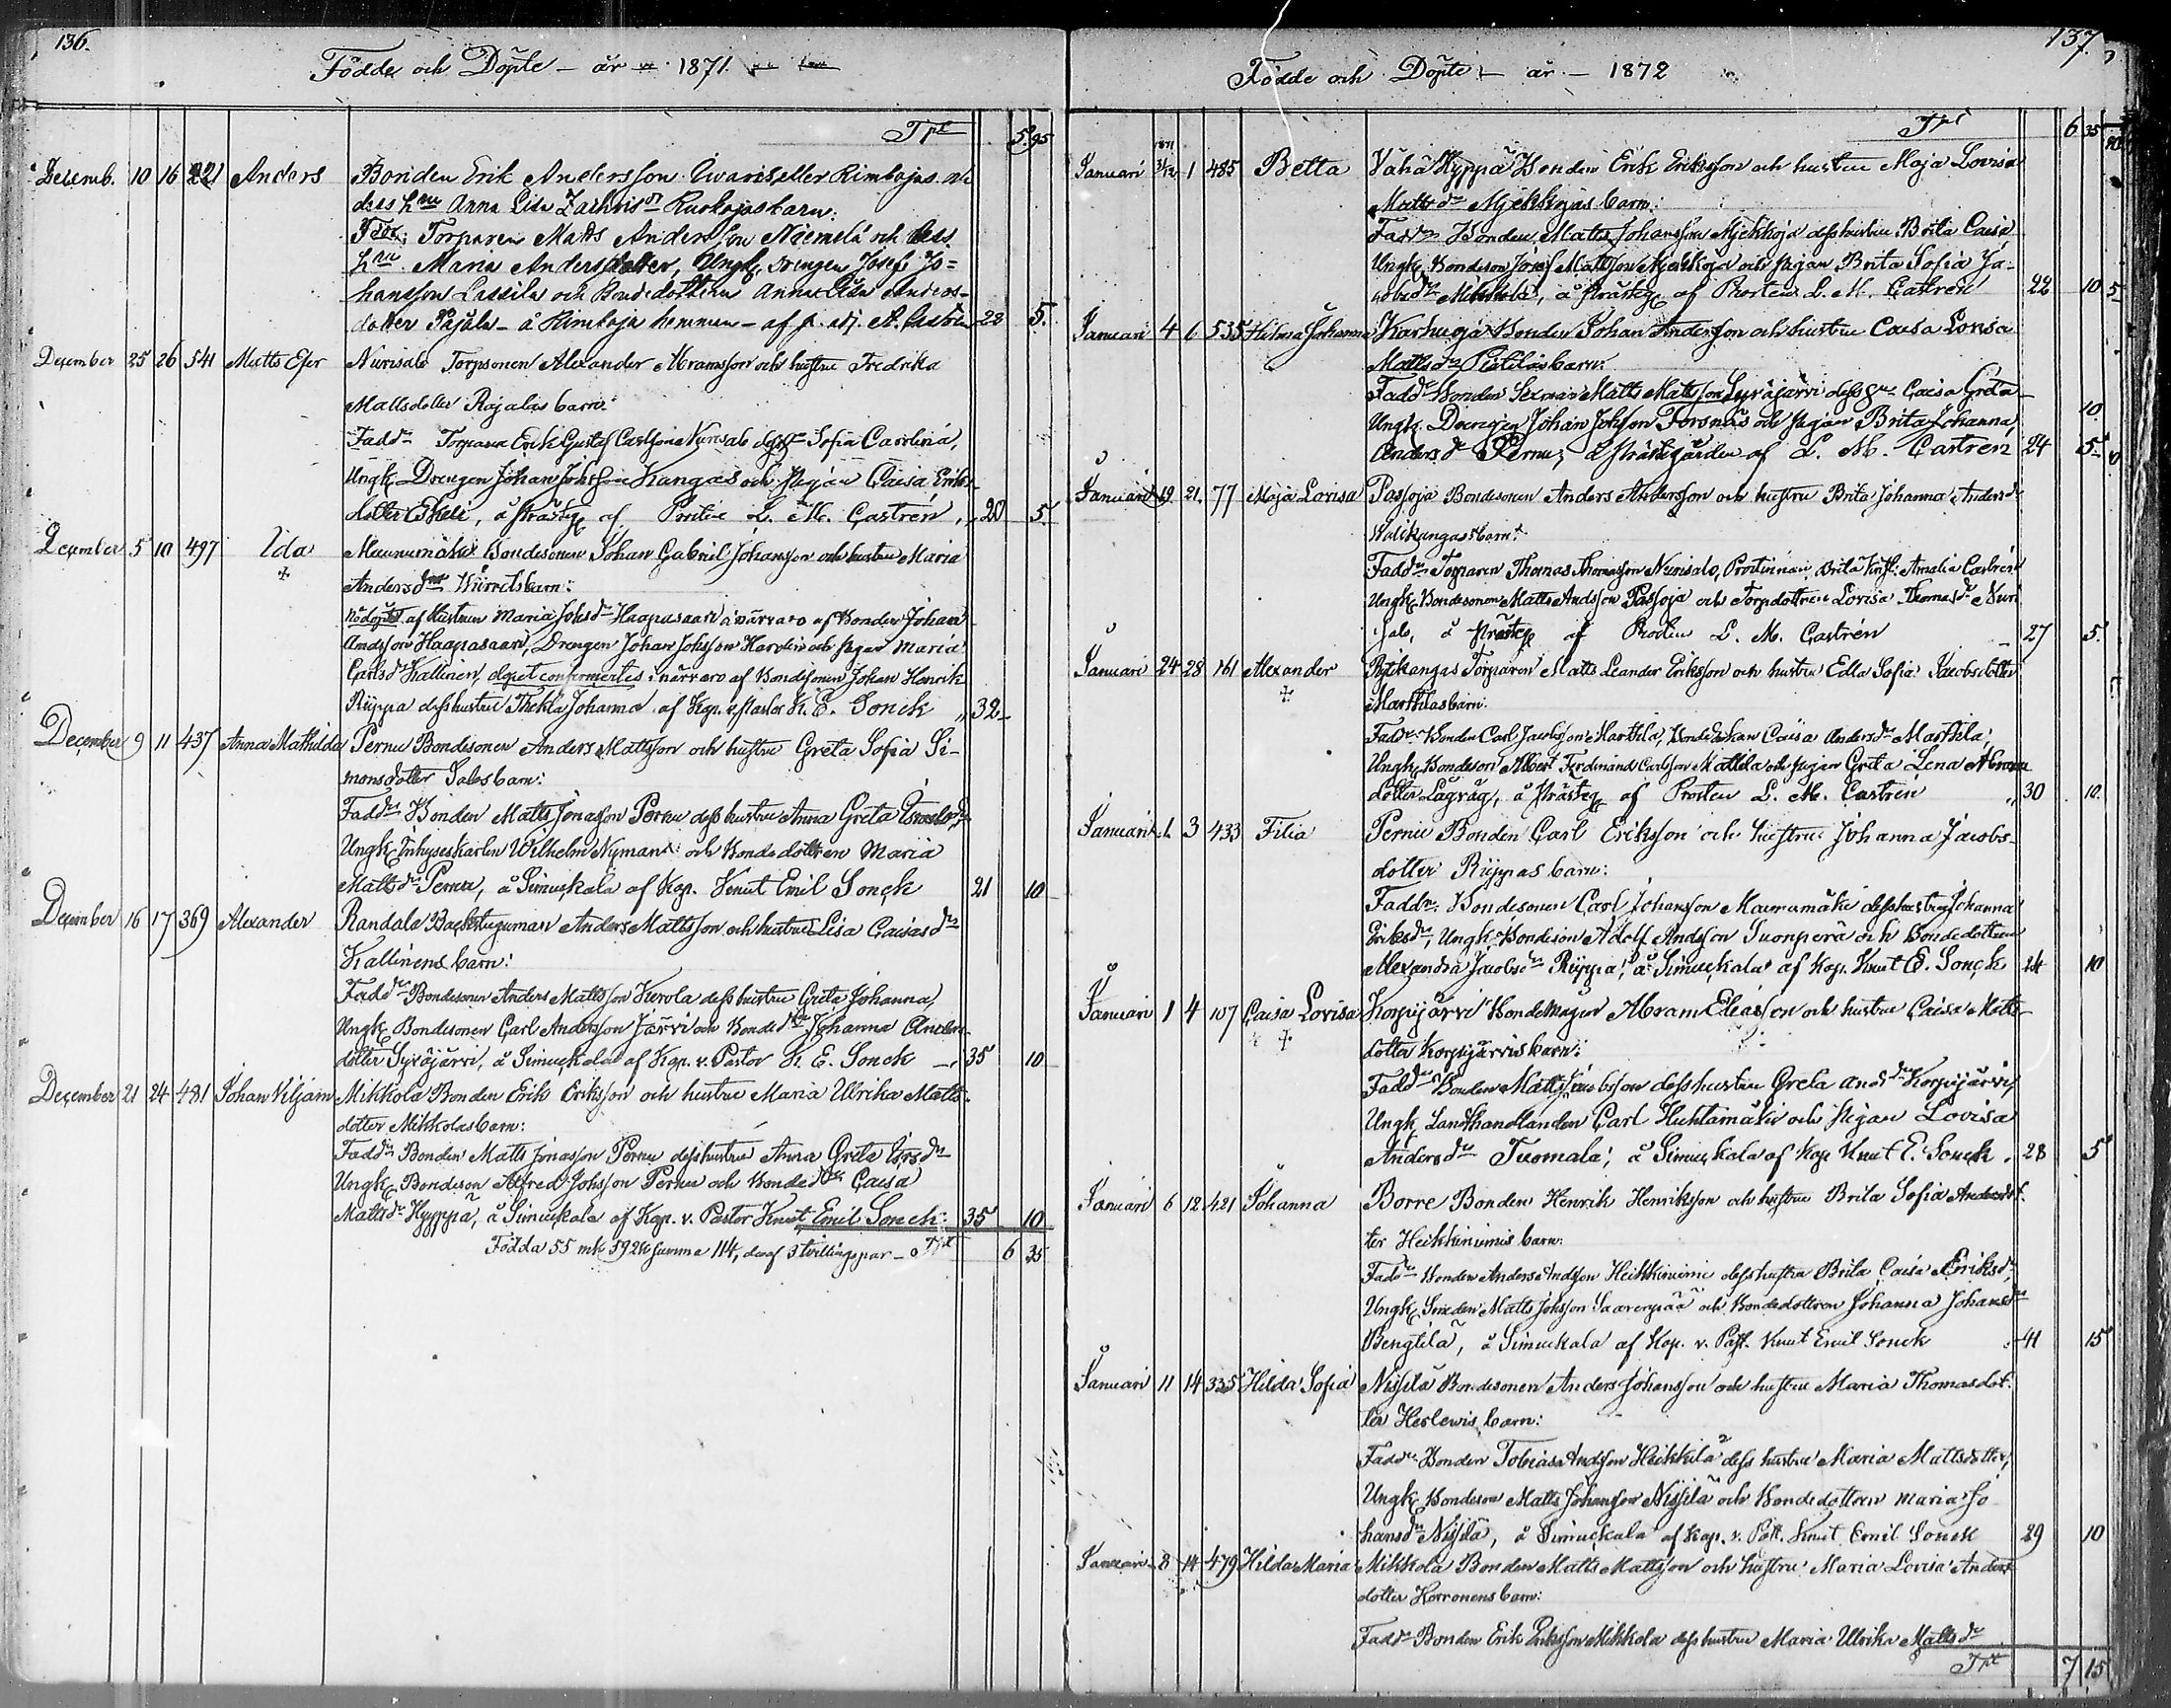 136.
Födde och Döpte - år 1871
Tpt 5.95
Decemb. 10 16 221 Anders Bonden Erik Andersson
dess hru Anna Lisa
Fadr: Torparen Matts Andersson Niemelä och dess
hru Maria Andersdotter, Ungk. drengen Josef Jo=
hansson Lassila och Bondedottren Anna Lisa Anders-
dotter Pajala - å Rimkoja hemman - af A. Castrén 28 5.
December 25 26 541 Matts Efer Nurisalo Torpsonen Alexander Abramsson och hustru Fredrika
Mattsdotter Rajalas barn.
Faddr Torparen Erik Gustaf Carlsson Nurisalo Sofia Carolina,
Ungk. Drengen Johan Johsson Kangas och Pigan Caisa Eriks-
dotter, å Prästg. af Prosten L. M. Castrén, 20 5.
December 5 10 497 Ida Maunumäki Bondesonen Johan Gabriel Johansson och hustru Maria
Andersdtr barn:
Nödöpt af Hustrun Maria Johsdr Haapasaari i närvaro af Bonden Johan
Andsson Haapasaari, Drengen Johan Johsson och Pigan Maria
Carlsdr Kallinen, dopet confirmertes i närvaro af Bondesonen Johan Henrik
Rüppa dess hustru Thekla Johanna af Kap. v. Pastor K. E. Sonck „ 32 -
December 9 11 437 Anna Mathilda Pernu Bondesonen Anders Mattsson och hustru Greta Sofia Si-
monsdotter Salos barn:
Faddr Bonden Matts Jonasson Pernu dess hustru Anna Greta Israelsdr
Ungk. Inhyseskarlen Wilhelm Nyman och Bondedottren Maria
Mattsdr Pernu, å Simuckala af Kap. Knut Emil Sonck 21 10
December 16 17 369 Alexander Randala Backstuguman Anders Mattsson och hustru Lisa Caisasdr
Kallinens barn:
Faddr Bondesonen Anders Mattsson Kerola dess hustru Greta Johanna,
Ungk. Bondesonen Carl Andersson Järvi och Bondedtr Johanna Anders-
dotter Syräjärvi, å Simuckala af Kap. v. Pastor K. E. Sonck 35 10
December 21 24 481 Johan Viljam Mikkola Bonden Erik Eriksson och hustru Maria Ulrika Matts-
dotter Mikkolas barn:
Faddr Bonden Matts Jonasson Pernu dess hustru Anna Greta Isrsdr
Ungk. Bondeson Alfred Johsson Pernu och Bondedtr Caisa
Mattsdr Hyppä, å Simuckala af Kap. v. Pastor Knut Emil Sonck 35 10
Födda 55 mk 59 qk summa 114, daraf 3 tvillingspar - Tpt 6 35
137
Födde och Döpte - år - 1872
Tpt 6 35
Januari 1871 31/12 1 485 Betta Vähä Hyppä Bonden Erik Eriksson och hustru Maja Lovisa
Mattsdr barn:
Faddr Bonden Matts Johansson dess hustru Brita Caisa
Ungk. Bondeson Josef Mattsson och Pigan Brita Sofia Ja-
cobsdr Mikkola, å Prästg. af Prosten L. M. Castrén 22 10
Januari 4 6 535 Hilma Johanna Bonden Johan Andersson och hustru Caisa Lovisa
Mattsdr barn:
Faddr Bonden Matts Mattsson Syräjärvi dess hu Caisa Greta
Ungk. Drengen Johan Johsson Forsnäs och Pigan Brita Johanna
Andersdr Pernu, å Prästgården af L. M. Castrén 24 5
Januari 19 21 77 Maja Lovisa Pasoja Bondesonen Anders Andersson och hustru Brita Johanna Andersdr
Walikangas barn:
Faddr Torparen Thomas Thomasson Nurisalo, Prostinnan Amalia Castrén
Ungk. Bondesonen Matts Andsson Pasoja och Torpdottren Lovisa Thomasdr Nuri
salo, å Prästg. af Prosten L. M. Castrén 27 5.
Januari 24 28 161 Alexander Torparen Matts Leander Eriksson och hustru Edla Sofia Jacobsdotter
Marttilas barn:
Faddr Bonden Carl Jacobsson Marttila, Caisa Andersdr Marttila,
Ungk. Bondeson Albert Ferdinand Carlsson Mattila och Pigan Greta Lena Abrams
dotter, å Prästg. af Prosten L. M. Castrén „ 30 10.
Januari 1 3 433 Filia Pernu Bonden Carl Eriksson och hustru Johanna Jacobs-
dotter Rüppas barn:
Faddr: Bondesonen Carl Johansson Maunumäki dess hustru Johanna
Eriksdr, Ungk. Bondeson Adolf Andsson Suonperä och Bondedottren
Alexandra Jacobsdr Rüppa, å Simuckala af Kap. Knut E. Sonck 24 10
Januari 1 4 107 Caisa Lovisa Korpijärvi Abram Eliasson och hustru Caisa Matts-
dotter Korpijärvis barn:
Faddr Bonden Matts Jacobsson dess hustru Greta Andsdr Korpijärvi,
Ungk. Landthandlanden Carl Huhtamäki och Pigan Lovisa
Andersdr Tuomala, å Simuckala af Kap. Knut E. Sonck 28 5
Januari 6 12 421 Johanna Borre Bonden Henrik Henriksson och hustru Brita Sofia Andersdot
ter Heikkiniemis barn:
Faddr Bonden Anders Andsson Heikkiniemi dess hustru Brita Caisa Eriksdr,
Ungk. Smeden Matts Johsson Saarenpää och Bondedottren Johanna Johansdr
Bengtilä, å Simuckala af Kap. v. Past. Knut Emil Sonck 41 15
Januari 11 14 335 Hilda Sofia Nissilä Bondesonen Anders Johansson och hustru Maria Thomasdot-
ter Herlewis barn:
Faddr Bonden Tobias Andsson Heikkilä dess hustru Maria Mattsdotter,
Ungk. Bondeson Matts Johansson Nissilä och Bondedottren Maria Jo
hansdr Nissilä, å Simuckala af Kap. v. Past. Knut Emil Sonck 29 10
Januari 8 14 479 Hilda Maria Mikkola Bonden Matts Mattsson och hustru Maria Lovisa Anders
dotter Korronens barn:
Faddr Bonden Erik Eriksson Mikkola dess hustru Maria Ulrika Mattsdr
Tpt 7 15